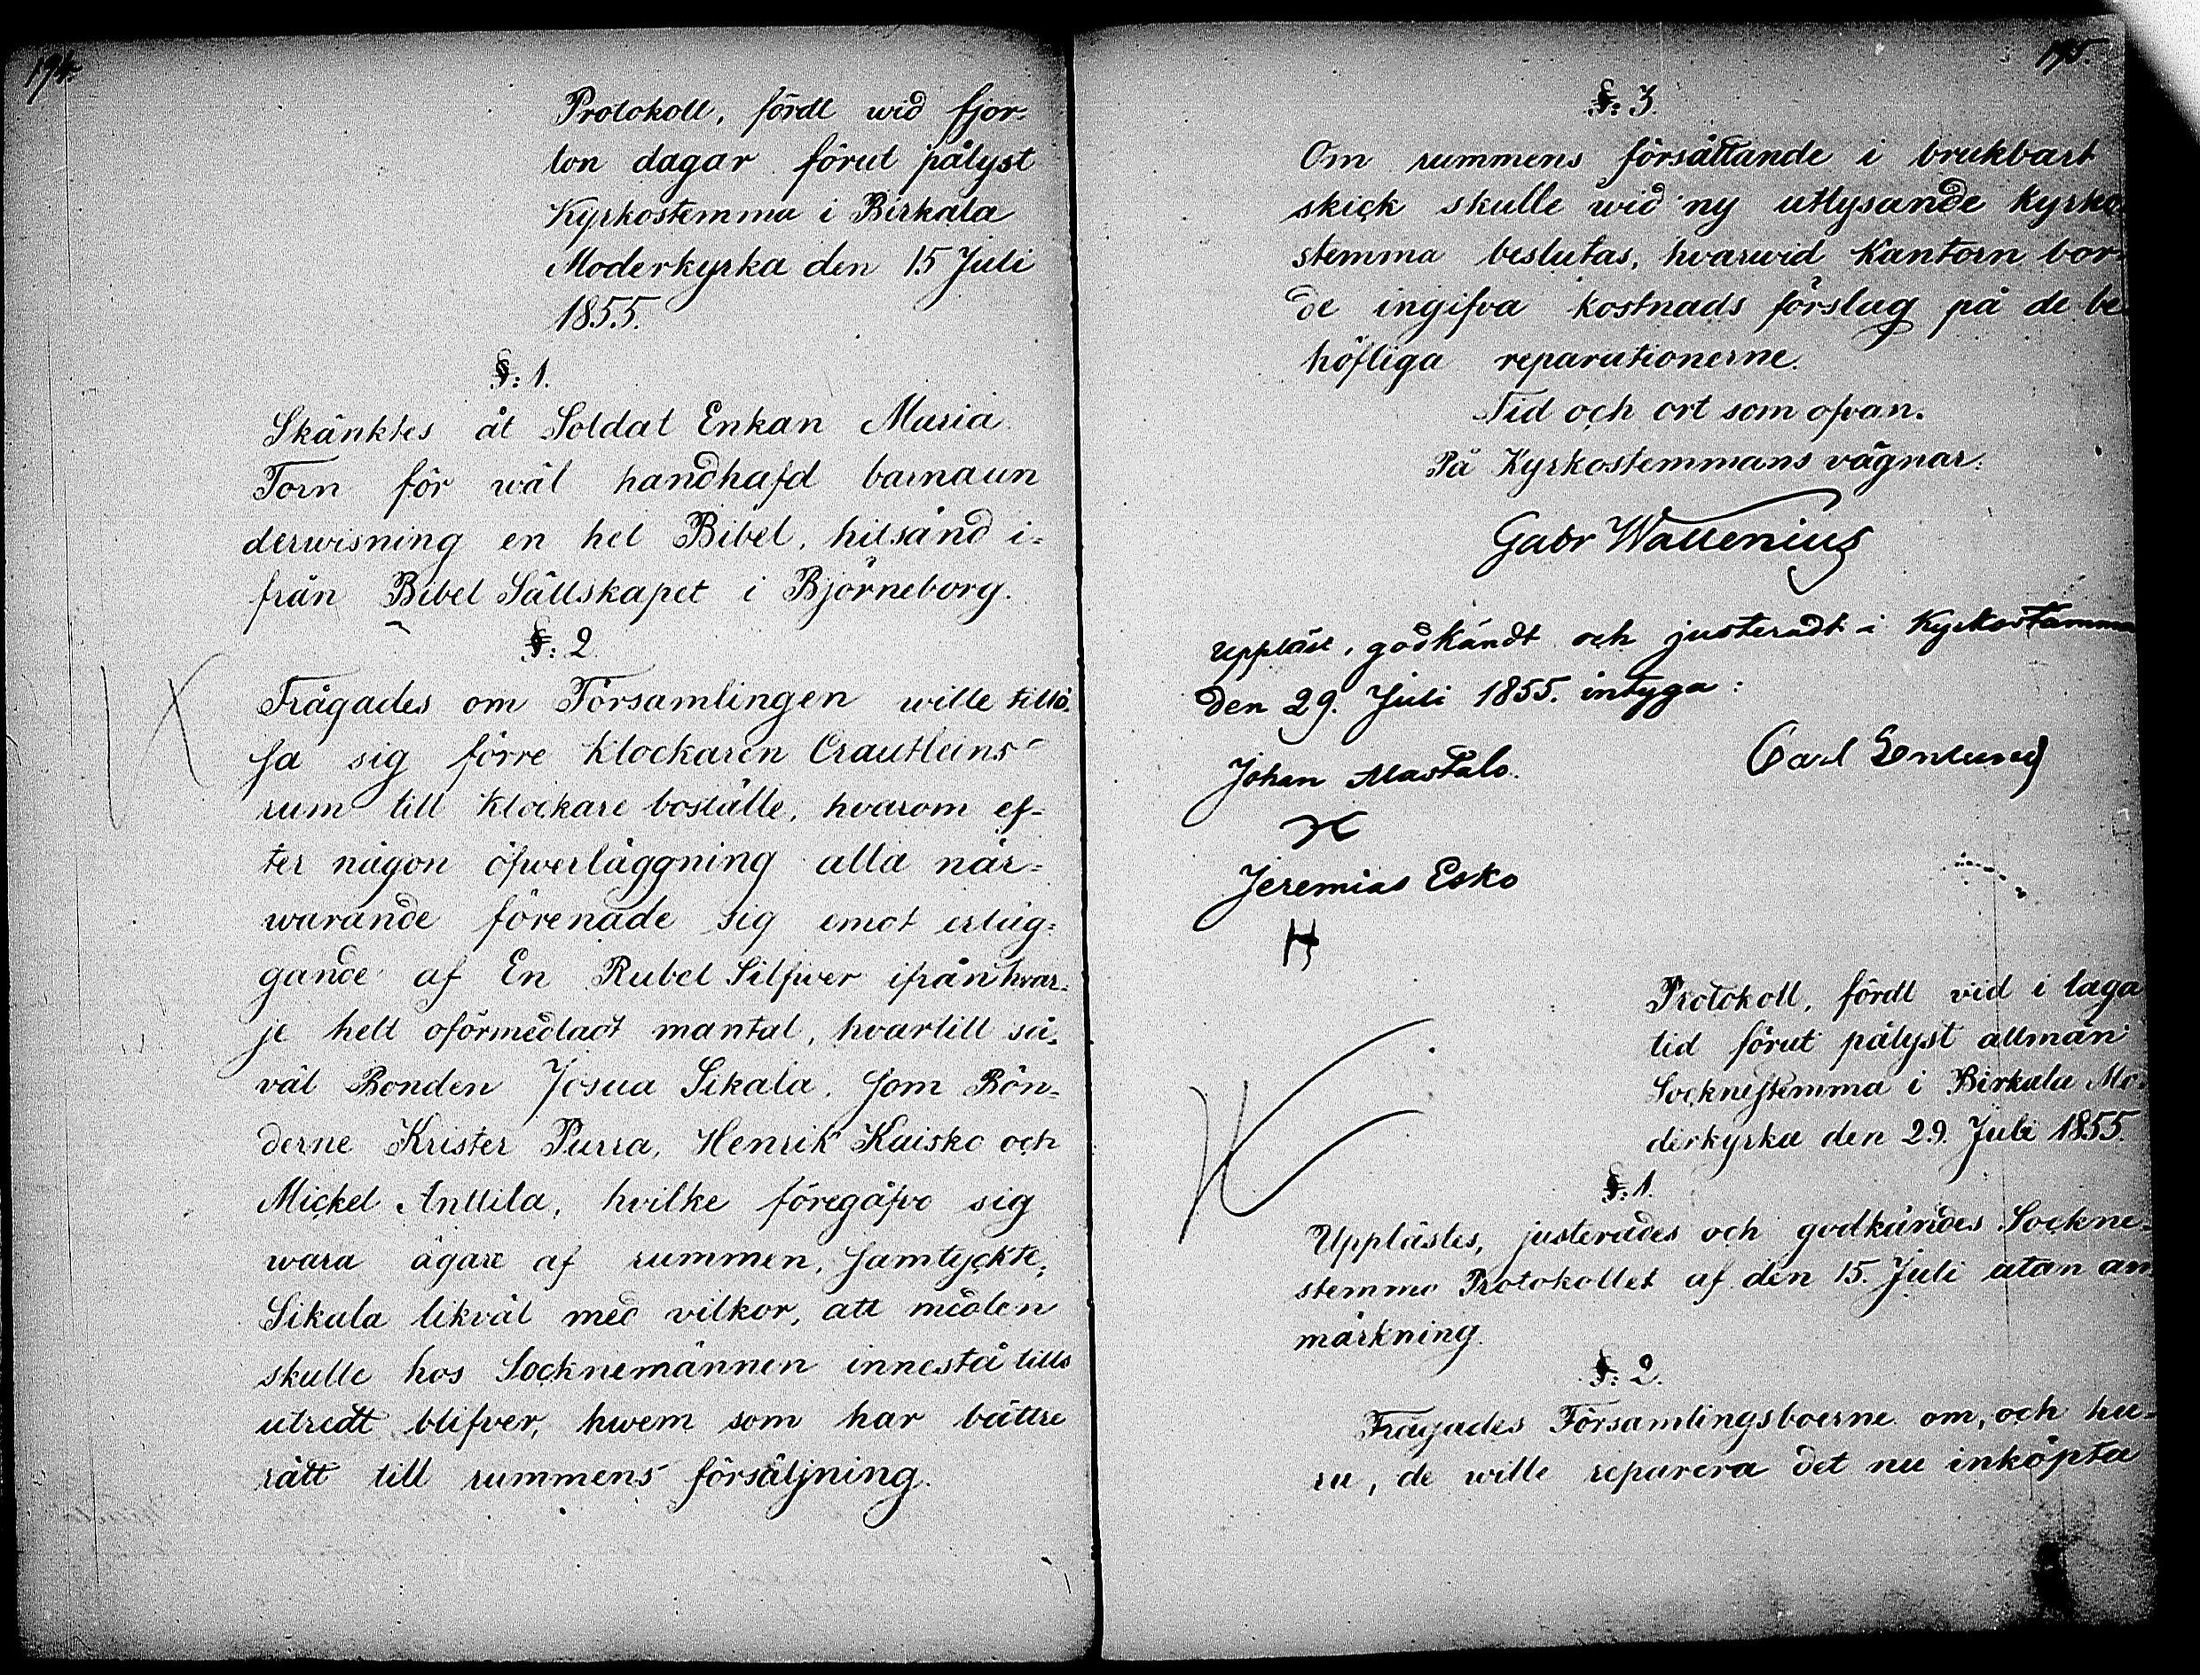 194.
Protokoll, fördt wid fjor-
ton dagar förut pålyst
Kyrkostemma i Birkala
Moderkyrka den 15 Juli
1855.
§: 1.
Skänktes åt Soldat Enkan Maria
Torn för wäl handhafd barnaun
derwisning en hel Bibel, hitsänd i-
från Bibel Sällskapet i Björneborg.
§: 2.
Frågades om Församlingen wille tillö-
sa sig förre Klockaren Crautleins
rum till Klockare boställe, hvarom ef-
ter någon öfwerläggning alla när-
warande förenade sig emot erläg-
gande af En Rubel Silfwer ifrån hvar-
je helt oförmedladt mantal, hvartill så-
väl Bonden Josua Sikala, som Bön-
derne Krister Purra, Henrik Kaisko och
Mickel Anttila, hvilke föregåfvo sig
wara ägare af rummen, samtyckte,
Sikala likväl med vilkor, att medlen
skulle hos Socknemännen innestå tills
utredt blifver, hwem som har bättre
rätt till rummens försäljning.
195.
§: 3.
Om rummens försättande i brukbart
skick skulle wid ny utlysande kyrko-
stemma beslutas, hvarwid Kantorn bor-
de ingifva kostnads förslag på de be-
höfliga reparationerne.
Tid och ort som ofvan.
På Kyrkostemmans vägnar:
Gabr Wallenius
Uppläst, godkändt och justeradt i Kyrkostämma
den 29. Juli 1855. intyga:
Johan Alastalo. Carl Enlund
Jeremias Esko
H
Protokoll, fördt vid i laga
tid förut pålyst allmän
Socknestemma i Birkala Mo-
derkyrka den 29. Juli 1855.
§: 1.
Upplästes, justerades och godkändes Sockne-
stemmo Protokollet af den 15. Juli utan an-
märkning.
§: 2.
Frågades Församlingsboerne om, och hu-
ru, de wille reparera det nu inköpta